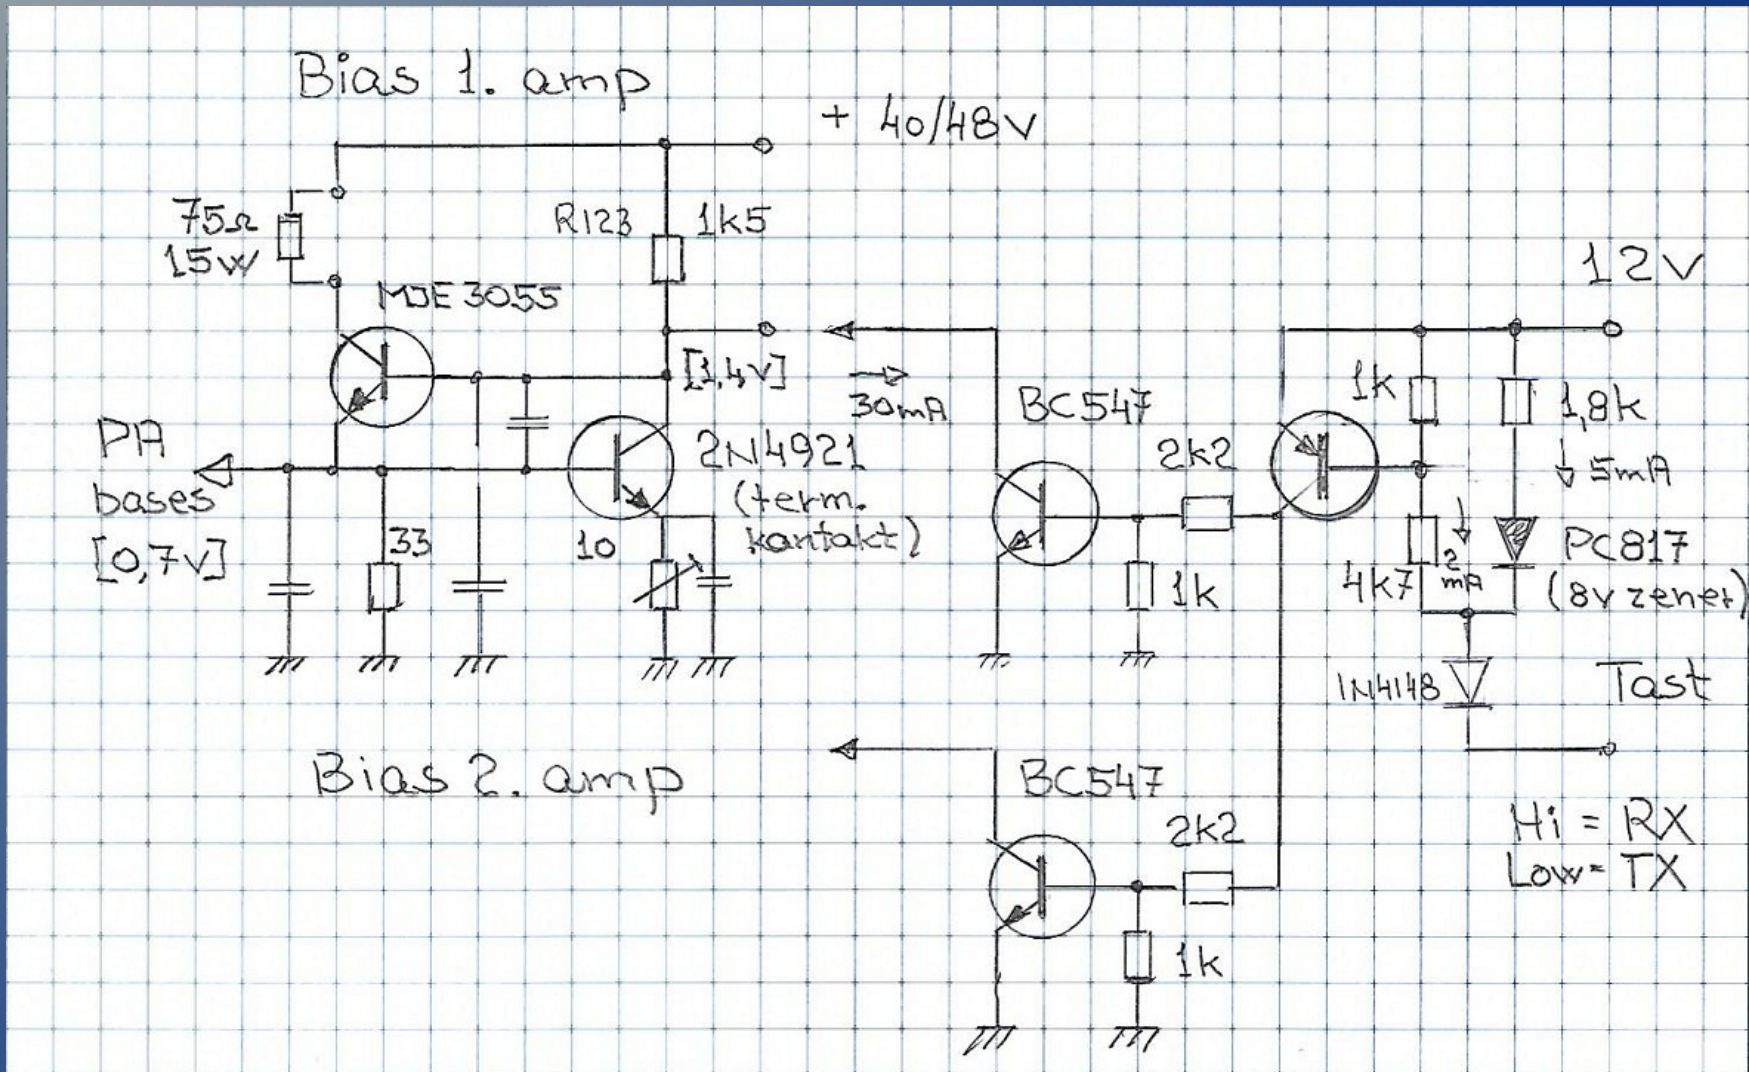 Bias 1. amp
+ 40/48V
75Ω
15W
R123
1k5
MJE3055
12V
[1,4V]
30mA
BC547
1k
1,8k
PA
bases
[0,7V]
2N4921
(term.
kontakt)
2k2
5mA
33
10
1k
4k7
2
mA
PC817
(8v zener)
1N4148
Tast
Bias 2. amp
BC547
2k2
Hi = RX
Low= TX
1k